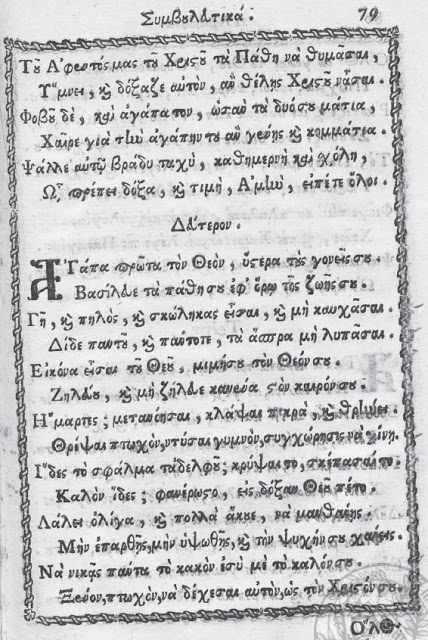 Συμβουλευτικά. 79
Τοῦ Ἀφεντός μας τοῦ Χριστοῦ τὰ Πάθη νὰ θυμᾶσαι,
Ὕμνει, καὶ δόξαζε αὐτὸν, ἂν θέλῃς Χριστοῦ νἆσαι.
Φοβοῦ δὲ, καὶ ἀγάπα τον, ὡσὰν τὰ δυόσου μάτια,
Χαῖρε γιὰ τὴν ἀγάπην του ἂν γενῇς καὶ κομμάτια.
Ψάλλε αὐτῷ βράδυ ταχὺ, καθημερνὴ καὶ χόλη,
Ὧ πρέπει δόξα, καὶ τιμὴ, Ἀμὴν, εἰπέτε ὅλοι.
Δεύτερον.
Ἀγάπα πρῶτα τὸν Θεὸν, ὕστερα τῆς γονεῖς σου.
Βασίλευε τὰ πάθη σου ἐφ' ὅρῳ τῆς ζωῆς σου.
Γῆ, καὶ πηλὸς, καὶ σκώληκας εἶσαι, καὶ μὴ καυχᾶσαι.
Δίδε παντοῦ, καὶ πάντοτε, τὰ ἄσπρα μὴ λυπᾶσαι.
Εἰκόνα εἶσαι τοῦ Θεοῦ, μιμήσου τὸν Θεόν σου.
Ζηλεύου, καὶ μὴ ζήλευε κανένα στὸν καιρόν σου.
Ἥμαρτες; μετανόησαι, κλάψαι πικρὰ, καὶ θρήνει.
Θρέψαι πτωχὸν, ντύσαι γυμνὸν, συγχώρησις νὰ γίνῃ.
Ἶδες τὸ σφάλμα τἀδελφοῦ; κρύψαι το, σκέπασαί το.
Καλὸν ἶδες; φανέρωσο, εἰς δόξαν Θεοῦ πέτο.
Λάλει ὀλίγα, καὶ πολλὰ ἄκουε, νὰ μανθάνῃς.
Μὴν ἐπαρθῇς, μὴν ὑψωθῇς, καὶ τὴν ψυχήν σου χάνεις.
Νὰ νικᾷς πάντα τὸ κακὸν ἐσὺ μὲ τὸ καλόν σου.
Ξένον, πτωχὸν, νὰ δέχεσαι αὐτὸν, ὡς τὸν Χριστόν σου.
Ὅλος